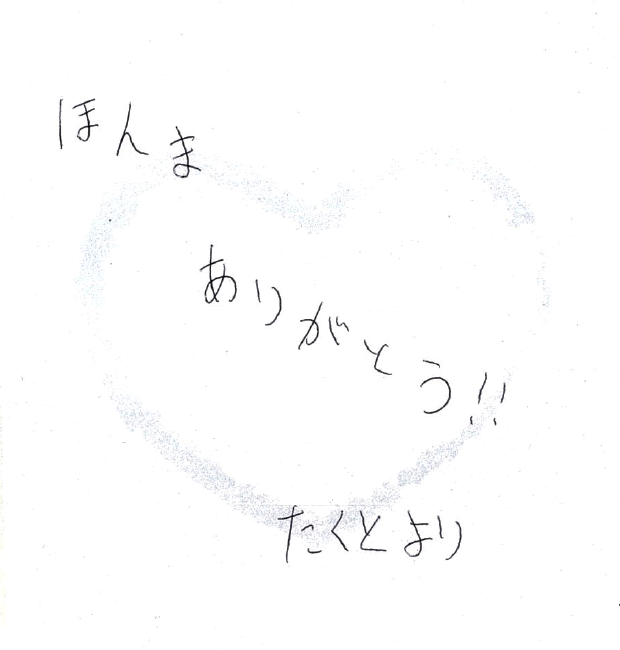 ほんま
ありがとう!!
たくとより